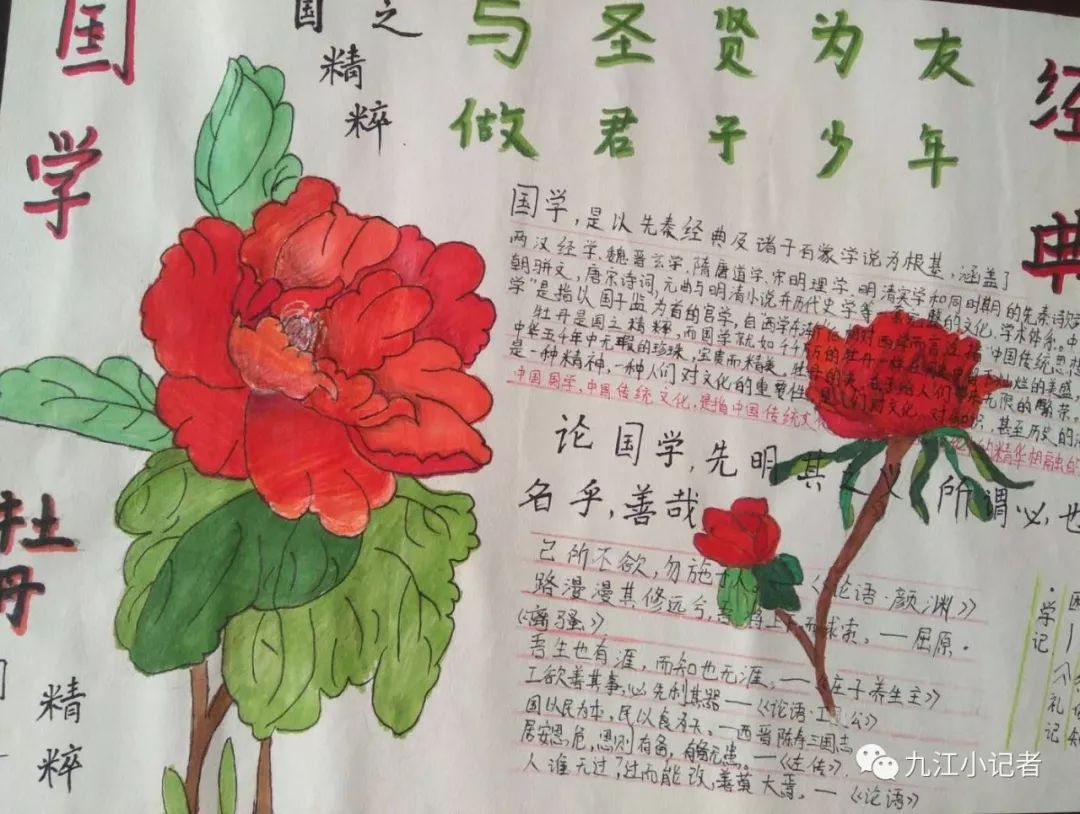 国学
国之
精粹
与圣贤为友
做君子少年
经典
国学,是以先秦经典及诸子百家学说为根基,涵盖了
两汉经学、魏晋玄学、隋唐道学、宋明理学、明清实学和同时期的先秦诗赋
朝骈文,唐宋诗词,元曲与明清小说并历代史学等一套完整的文化,学术体系。中
学"是指以国子监为首的官学,自"西学东渐"
牡丹是国之精粹,而国学就如千千万万的牡丹一样
中华五千年中无瑕的珍珠,宝贵而精美。牡丹的美,在于给人们带来无限的繁荣。
是一种精神,一种人们对文化的重要性
中国国学,中国传统文化,是指中国传统文化
论国学,先明其之义 所谓必也
名乎,善哉
己所不欲,勿施于人 —《论语·颜渊》
路漫漫其修远兮,吾将上下而求索。—屈原·
《离骚》
吾生也有涯,而知也无涯。—《庄子养生主》
工欲善其事,必先利其器—《论语·卫灵公》
国以民为本,民以食为天。—西晋陈寿三国志
居安思危,思则有备,有备无患。—《左传》
人谁无过,过而能改,善莫大焉。—《论语》
牡丹
国
精粹
·学记
困
《礼记
九江小记者